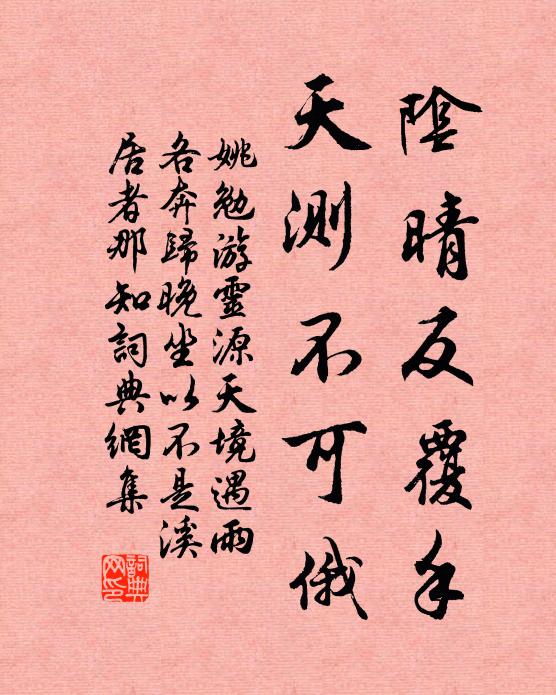 陰晴反覆手
天測不可俄
姚勉游靈源天境遇雨
各奔歸晚坐以不是溪
居者那知詞典網集
詞典网印